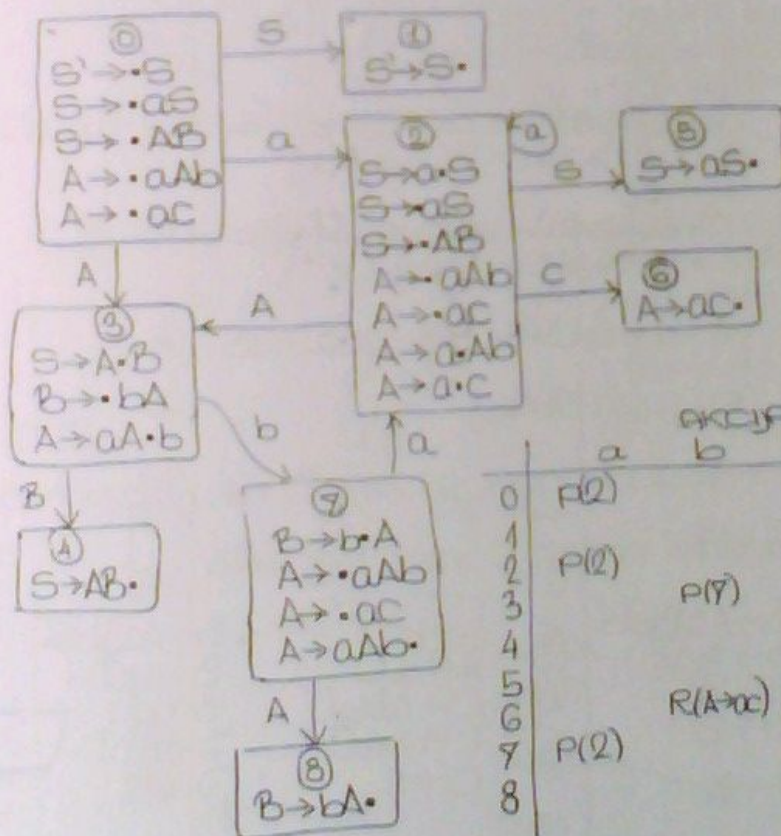 0
S'→•S
S→•aS
S→•AB
A→•aAb
A→•aC
S
1
S'→S•
a
2
S→a•S
S→•aS
S→•AB
A→•aAb
A→•aC
A→a•Ab
A→a•C
a
S
5
S→aS•
C
6
A→aC•
A
A
3
S→A•B
B→•bA
A→aA•b
b
a
B
4
S→AB•
7
B→b•A
A→•aAb
A→•aC
A→aAb•
A
8
B→bA•
a b
0 P(2)
1
2 P(2)
3 P(7)
4
5
6 R(A→aC)
7 P(2)
8